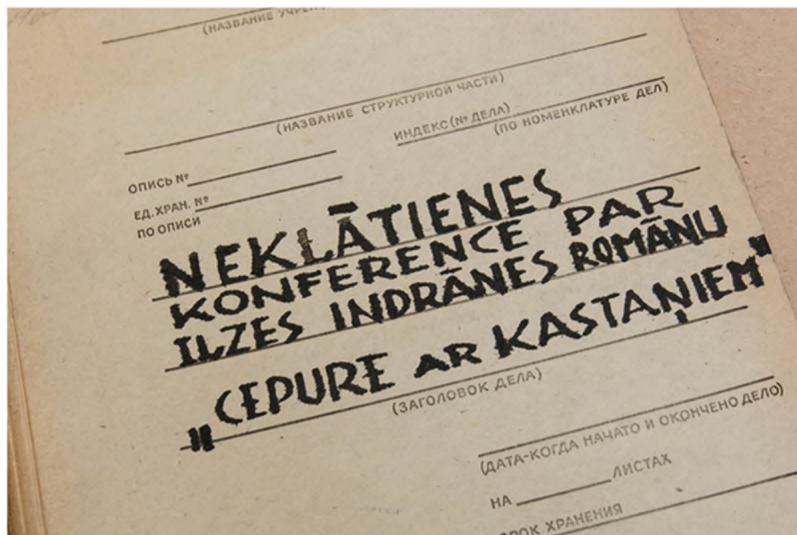 (НАЗВАНИЕ
(НАЗВАНИЕ СТРУКТУРНОЙ ЧАСТИ)
ИНДЕКС (№ ДЕЛА)
(ПО НОМЕНКЛАТУРЕ ДЕЛ)
ОПИСЬ №
ЕД. ХРАН. №
ПО ОПИСИ
NEKLĀTIENES
KONFERENCE PAR
ILZES INDRĀNES ROMĀNU
„CEPURE AR KASTAŅIEM"
(ЗАГОЛОВОК ДЕЛА)
(ДАТА-КОГДА НАЧАТО И ОКОНЧЕНО ДЕЛО)
НА ЛИСТАХ
ХРАНЕНИЯ